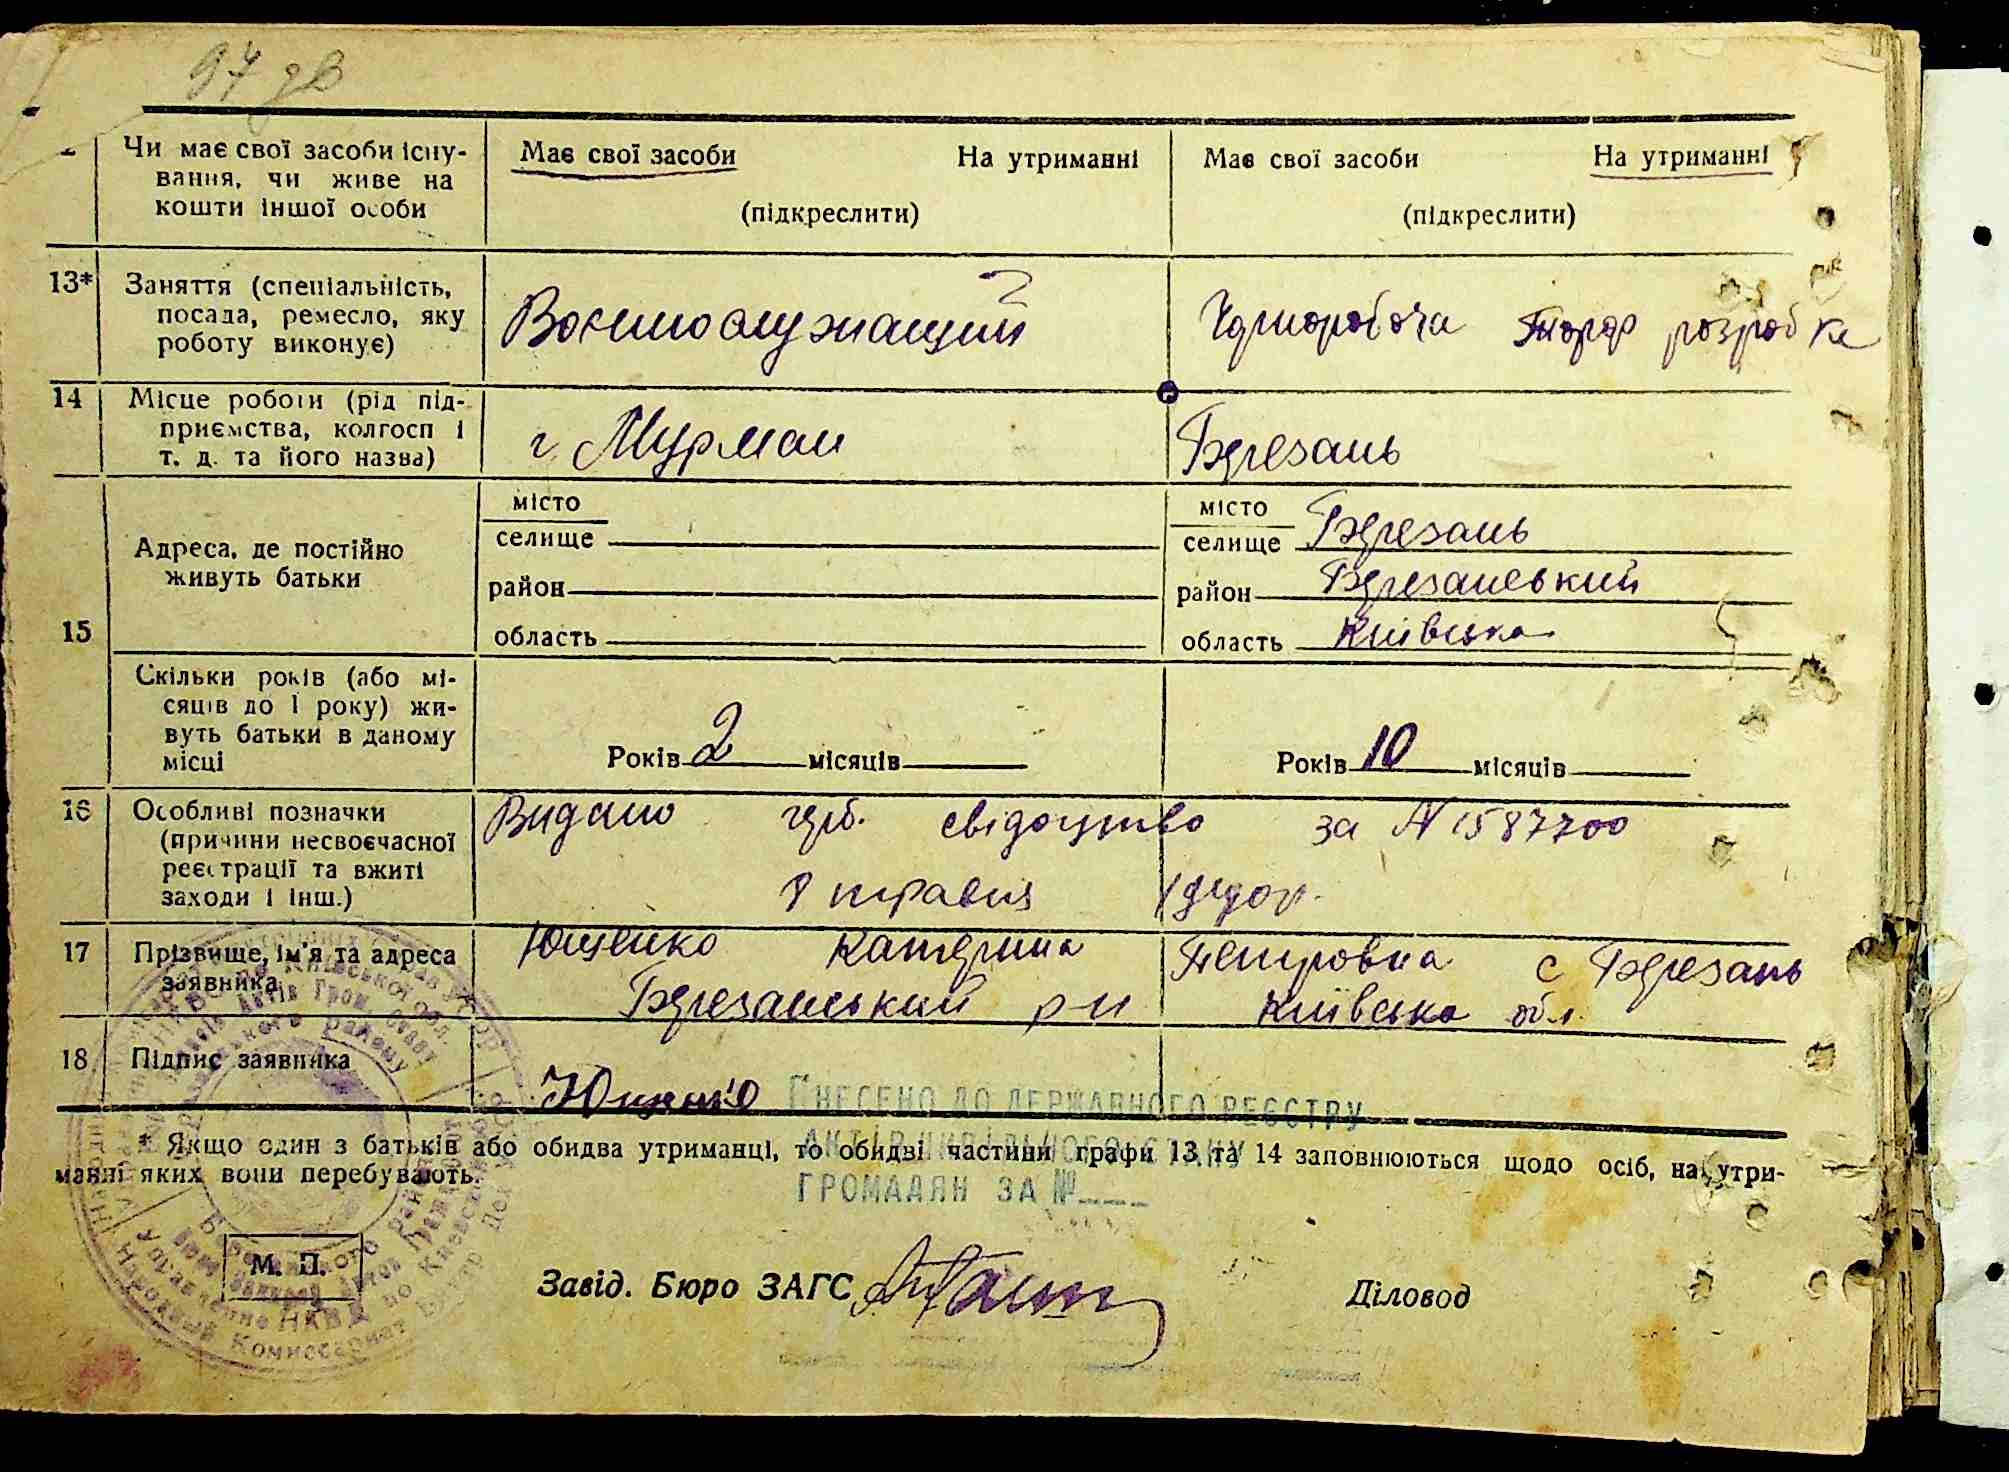 97 зв
Чи має свої засоби існу-
вання, чи живе на
кошти іншої особи
Має свої засоби На утриманні
(підкреслити)
Має свої засоби На утриманні
(підкреслити)
13* Заняття (спеціальність,
посада, ремесло, яку
роботу виконує)
Воєннослужащий
Чорноробоча Торф розробка
14 Місце роботи (рід під-
приємства, колгосп і
т. д. та його назва)
г. Мурман
Березань
15
Адреса, де постійно
живуть батьки
місто
селище
район
область
місто
селище Березань
район Березанський
область Київська
Скільки років (або мі-
сяців до 1 року) жи-
вуть батьки в даному
місці
Років 2 місяців
Років 10 місяців
16 Особливі позначки
(причини несвоєчасної
реєстрації та вжиті
заходи і інш.)
Видано герб. свідоцтво за № 1587700
8 травня
17 Прізвище, ім'я та адреса
заявника
Ющенко Катерина Петровна с Березань
Березанський р-н Київська обл.
18 Підпис заявника
Ющенко
ВНЕСЕНО ДО ДЕРЖАВНОГО РЕЄСТРУ
АКТІВ ЦИВІЛЬНОГО СТАНУ
ГРОМАДЯН ЗА №
* Якщо один з батьків або обидва утриманці, то обидві частини графи 13 та 14 заповнюються щодо осіб, на утри-
манні яких вони перебувають.
М. П.
Завід. Бюро ЗАГС
Діловод